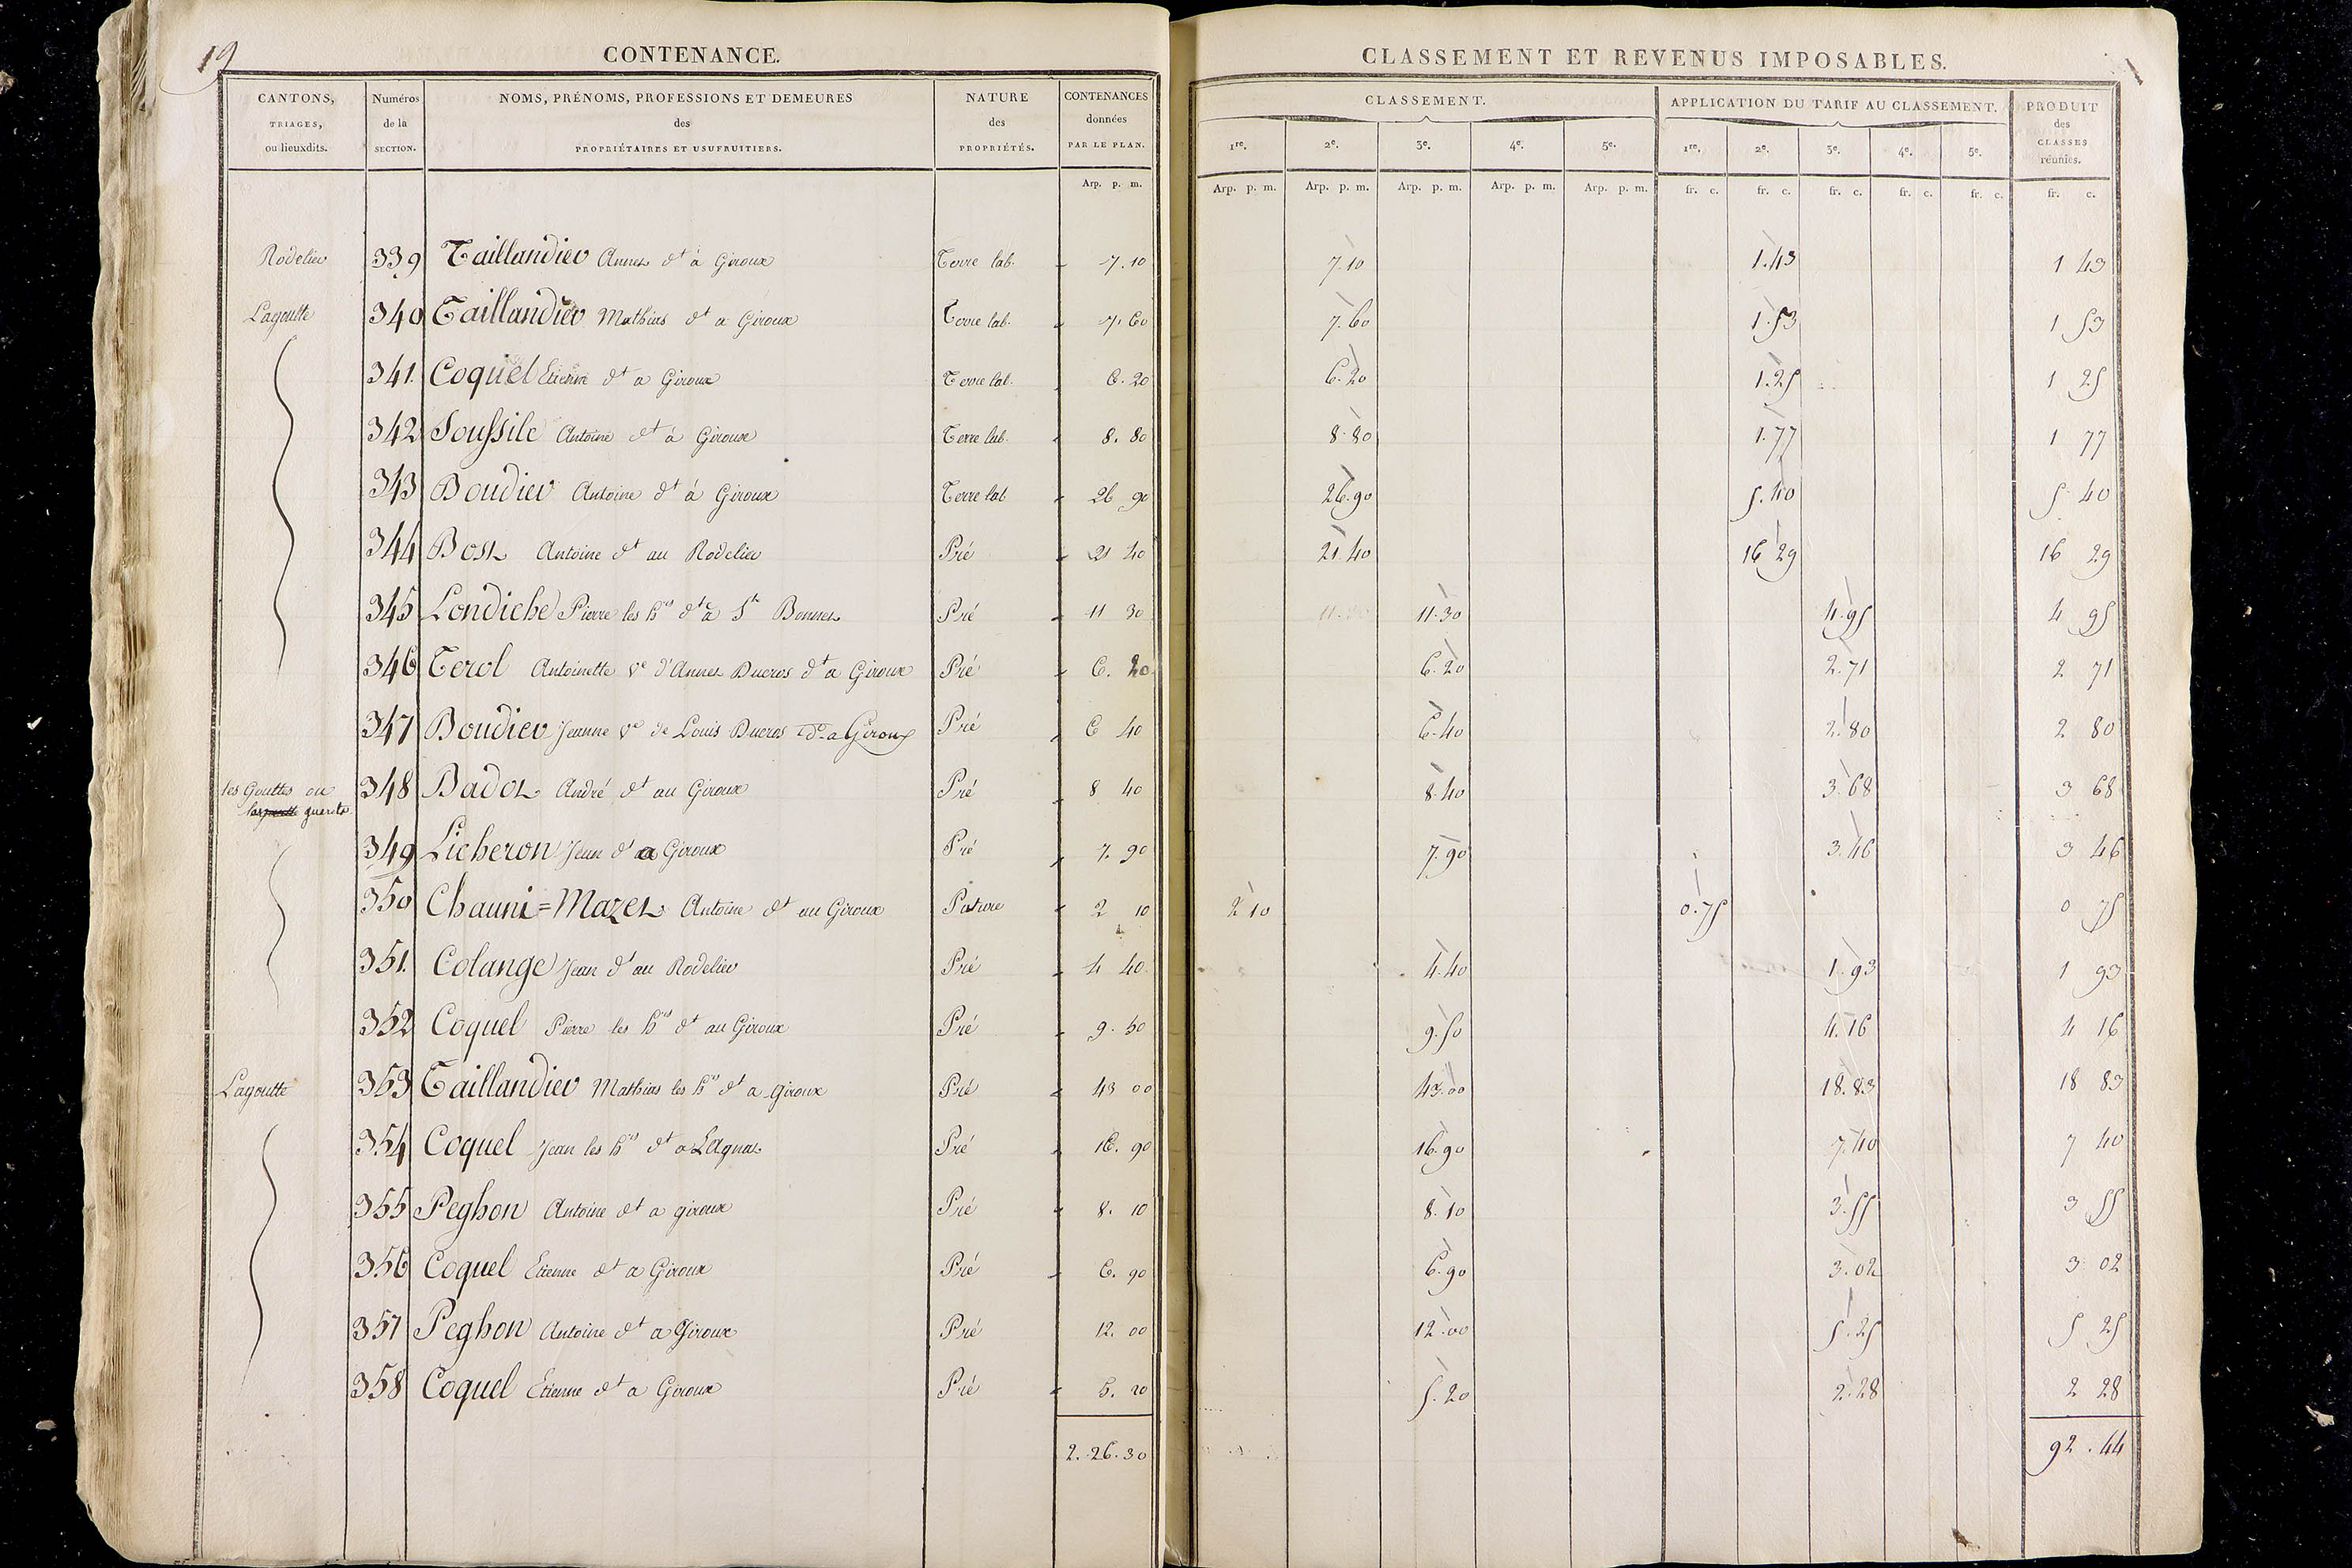 19
CONTENANCE.
CANTONS, TRIAGES, ou lieuxdits. Numéros de la SECTION. NOMS, PRÉNOMS, PROFESSIONS ET DEMEURES des PROPRIÉTAIRES ET USUFRUITIERS. NATURE des PROPRIÉTÉS. CONTENANCES données PAR LE PLAN.
Arp. p. m.
CLASSEMENT ET REVENUS IMPOSABLES.
CLASSEMENT. APPLICATION DU TARIF AU CLASSEMENT. PRODUIT des CLASSES réunies.
1re. 2e. 3e. 4e. 5e. 1re. 2e. 3e. 4e. 5e.
Arp. p. m. Arp. p. m. Arp. p. m. Arp. p. m. Arp. p. m. fr. c. fr. c. fr. c. fr. c. fr. c. fr. c.
Rodelier 339 Taillandier Annet dt à Giroux Terre lab. 7.10 7.10 1.43 1 43
Lagoutte 340 Taillandier Mathias dt a Giroux Terre lab. 7.60 7.60 1.53 1 53
341. Coquel Etienne dt a Giroux Terre lab. 6.20 6.20 1.25 1 25
342 Soussile Antoine dt à Giroux Terre lab. 8.80 8.80 1.77 1 77
343 Boudier Antoine dt à Giroux Terre lab 26 90 26.90 5.40 5 40
344 Bost Antoine dt au Rodelier Pré 21 40 21.40 16 29 16 29
345 Londiche Pierre les hrs dt à St Bonnet Pré 11 30 11.30 4.95 4 95
346 Terol Antoinette ve d'Annet Ducros dt a Giroux Pré 6. 20 6.20 2.71 2 71
347 Boudier Jeanne ve de Louis Ducros dt a Giroux Pré 6 40 6.40 2.80 2 80
les Gouttes ou 348 Badot André dt au Giroux Pré 8 40 8.40 3.68 3 68
349 Licheron Jean dt a Giroux Pré 7. 90 7.90 3.46 3 46
350 Chauni=Mazet Antoine dt au Giroux Pature 2 10 2 10 0.75 0 75
351. Colange Jean dt au Rodelier Pré 4 40 4.40 1.93 1 93
352 Coquel Pierre les hrs dt au Giroux Pré 9.50 9.50 4.16 4 16
Lagoutte 353 Taillandier Mathias les hrs dt a giroux Pré 43 00 43.00 18.83 18 83
354 Coquel Jean les hrs dt a Lagnat Pré 16. 90 16.90 7.40 7 40
355 Peghon Antoine dt a giroux Pré 8. 10 8.10 3.55 3 55
356 Coquel Etienne dt a Giroux Pré 6. 90 6.90 3.02 3 02
357 Peghon Antoine dt a Giroux Pré 12. 00 12.00 5.25 5 25
358 Coquel Etienne dt a Giroux Pré 5. 20 5.20 2.28 2 28
2.26.30 92.44